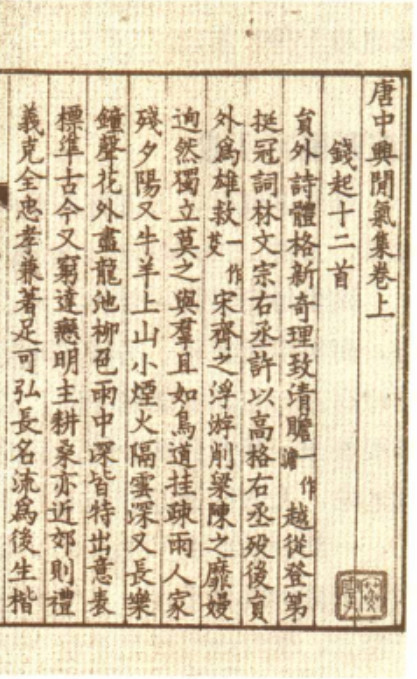 唐中興閒氣集卷上
錢起十二首
員外詩體格新奇理致清贍一作澹越從登第
挺冠詞林文宗右丞許以高格右丞歿後員
外爲雄救一作艾宋齊之浮游削梁陳之靡嫚
迥然獨立莫之與羣且如鳥道挂疎雨人家
殘夕陽又牛羊上山小煙火隔雲深又長樂
鐘聲花外盡龍池柳色雨中深皆特出意表
標準古今又窮達戀明主耕桑亦近郊則禮
義克全忠孝兼著足可弘長名流爲後生楷